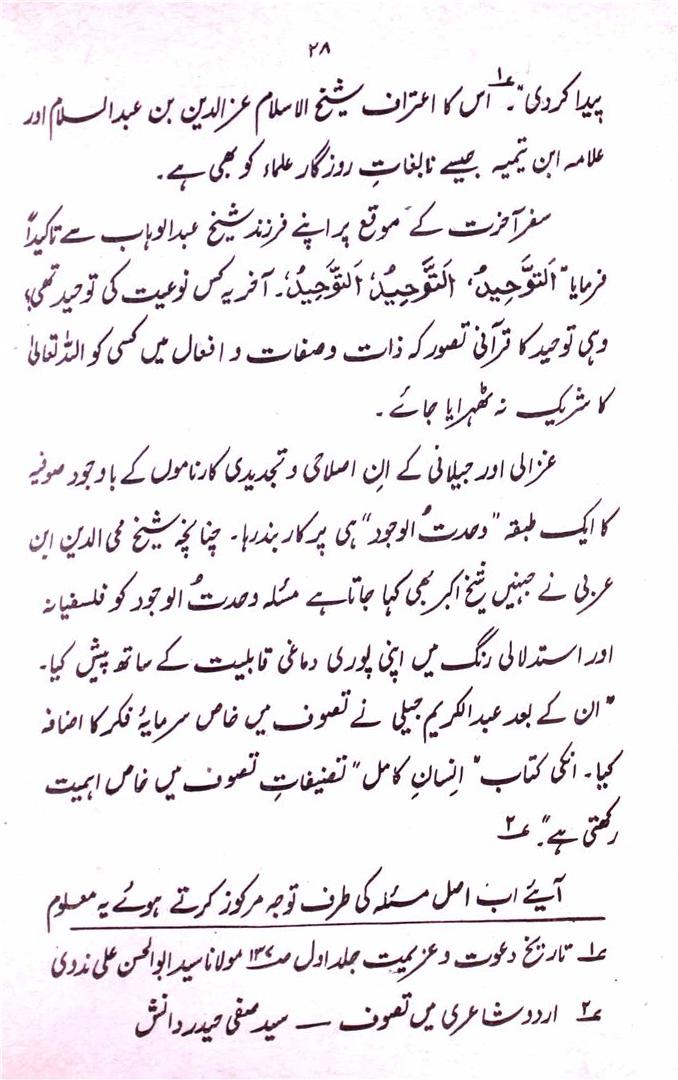 ۲۸
پیدا کردی"۔ ؏۱ اس کا اعتراف شیخ الاسلام عزالدین بن عبدالسلام اور
علامہ ابن تیمیہ جیسے نابغاتِ روزگار علماء کو بھی ہے۔
سفر آخرت کے موقع پر اپنے فرزند شیخ عبدالوہاب سے تاکیداً
فرمایا "اَلتَّوَّحِیدُ، اَلتَّوَّحِیدُ، اَلتَّوَّحِیدُ،۔ آخر یہ کس نوعیت کی توحید تھی؟
وہی توحید کا قرآنی تصور کہ ذات و صفات و افعال میں کسی کو اللہ تعالیٰ
کا شریک نہ ٹھہرایا جائے۔
غزالی اور جیلانی کے اِن اصلاحی و تجدیدی کارناموں کے باوجود صوفیہ
کا ایک طبقہ "وحدتُ الوجود" ہی پر کاربند رہا۔ چنانچہ شیخ محی الدین ابن
عربی نے جنہیں شیخ اکبر بھی کہا جاتا ہے مسئلہ وحدتُ الوجود کو فلسفیانہ
اور استدلالی رنگ میں اپنی پوری دماغی قابلیت کے ساتھ پیش کیا۔
"ان کے بعد عبدالکریم جیلی نے تصوف میں خاص سرمایۂ فکر کا اضافہ
کیا۔ انکی کتاب "اِنسانِ کامل" تصنیفاتِ تصوف میں خاص اہمیت
رکھتی ہے"۔ ؏۲
آیئے اب اصل مسئلہ کی طرف توجہ مرکوز کرتے ہوئے یہ معلوم
؏۱ تاریخ دعوت و عزیمت جلد اول صـ۱۳۷ مولانا سید ابوالحسن علی ندوی
؏۲ اردو شاعری میں تصوف — سید صفی حیدر دانش